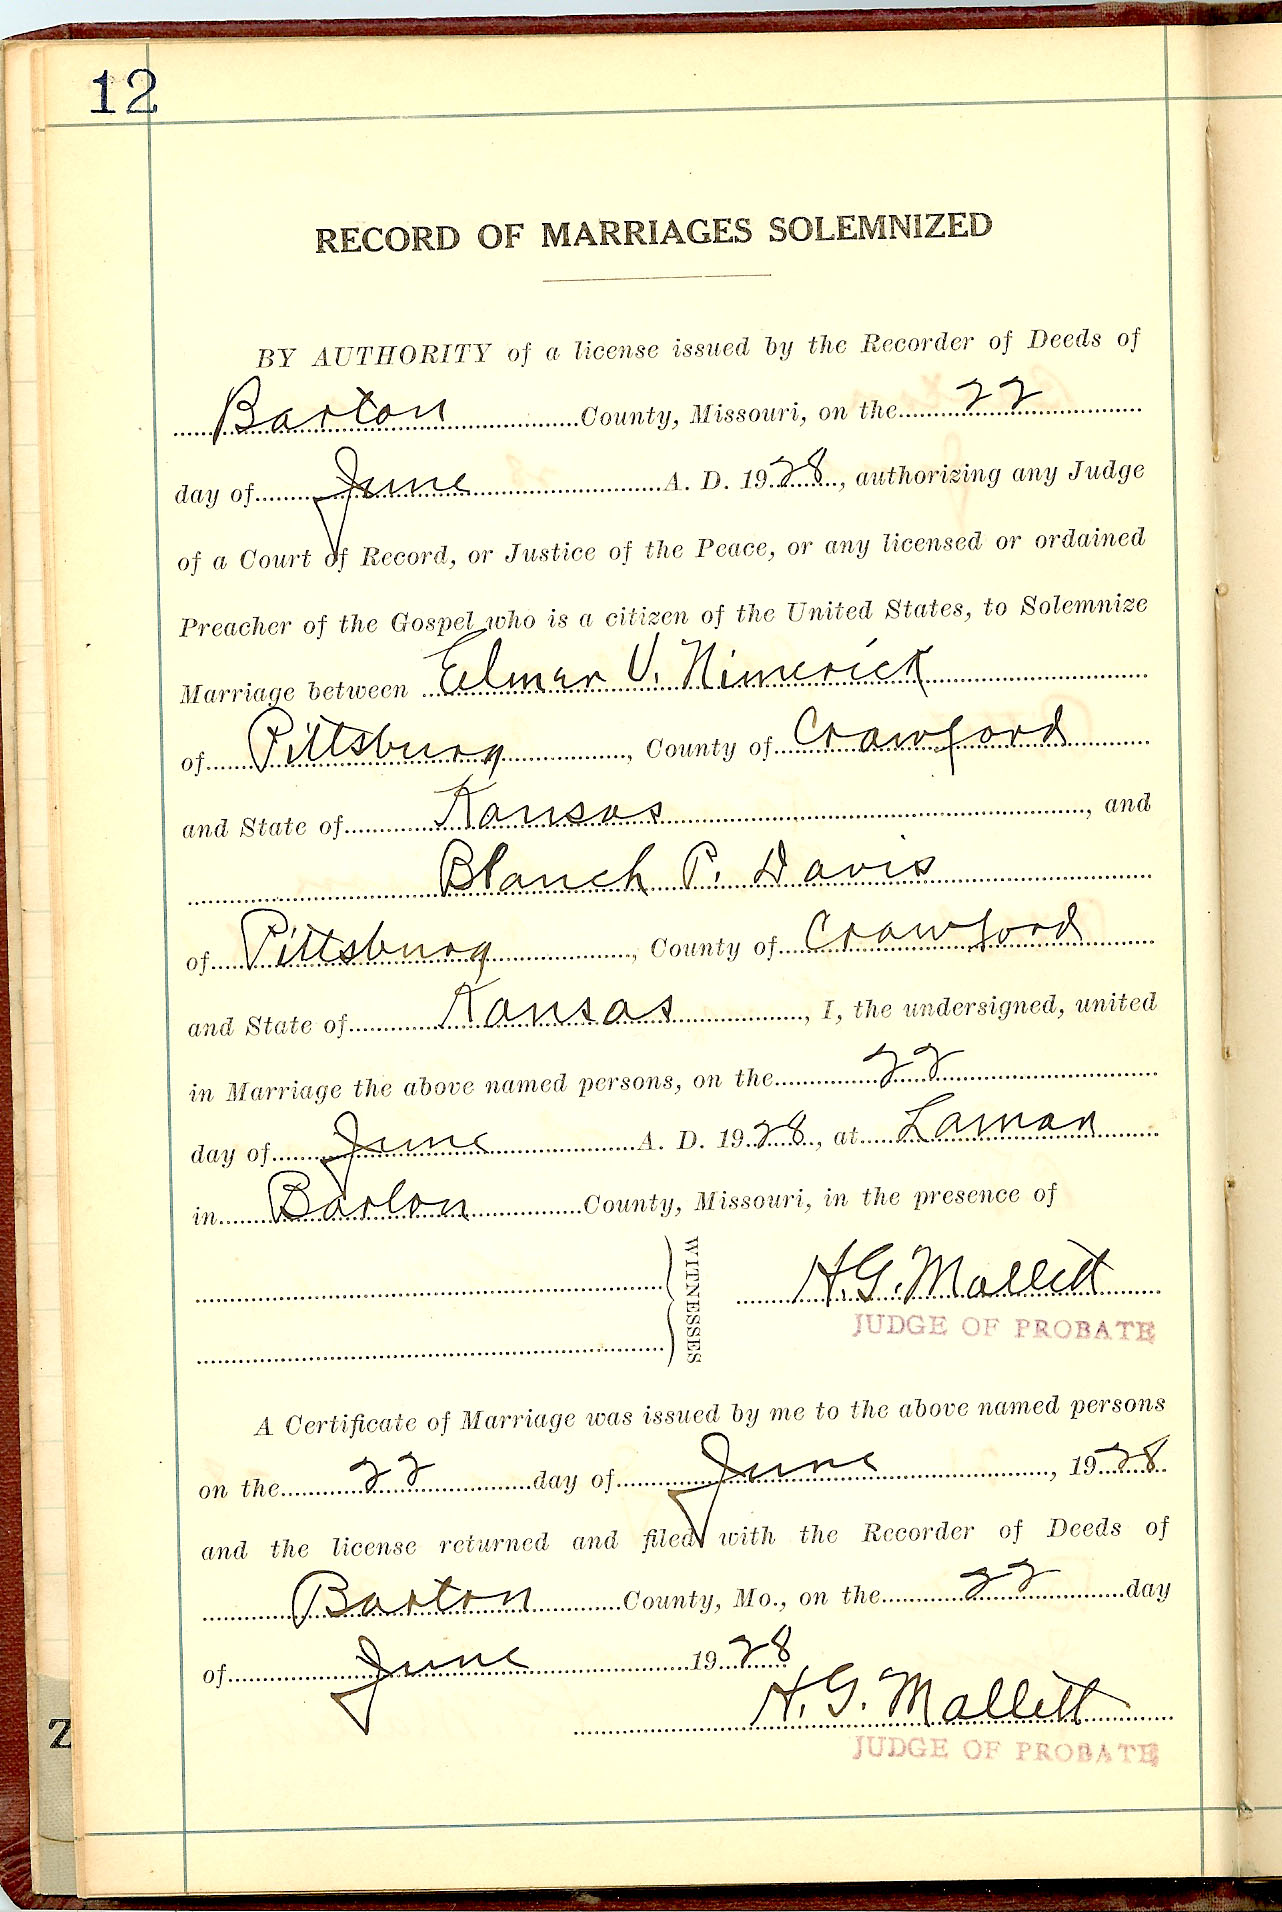 12
RECORD OF MARRIAGES SOLEMNIZED
BY AUTHORITY of a license issued by the Recorder of Deeds of
Barton County, Missouri, on the 22
day of June A. D. 1928, authorizing any Judge
of a Court of Record, or Justice of the Peace, or any licensed or ordained
Preacher of the Gospel who is a citizen of the United States, to Solemnize
Marriage between Elmer V. Nimerick
of Pittsburg, County of Crawford
and State of Kansas, and
Blanch P. Davis
of Pittsburg, County of Crawford
and State of Kansas, I, the undersigned, united
in Marriage the above named persons, on the 22
day of June A. D. 1928, at Lamar
in Barton County, Missouri, in the presence of
WITNESSES
H. G. Mallett
JUDGE OF PROBATE
A Certificate of Marriage was issued by me to the above named persons
on the 22 day of June, 1928
and the license returned and filed with the Recorder of Deeds of
Barton County, Mo., on the 22 day
of June 1928
H. G. Mallett
JUDGE OF PROBATE
Z